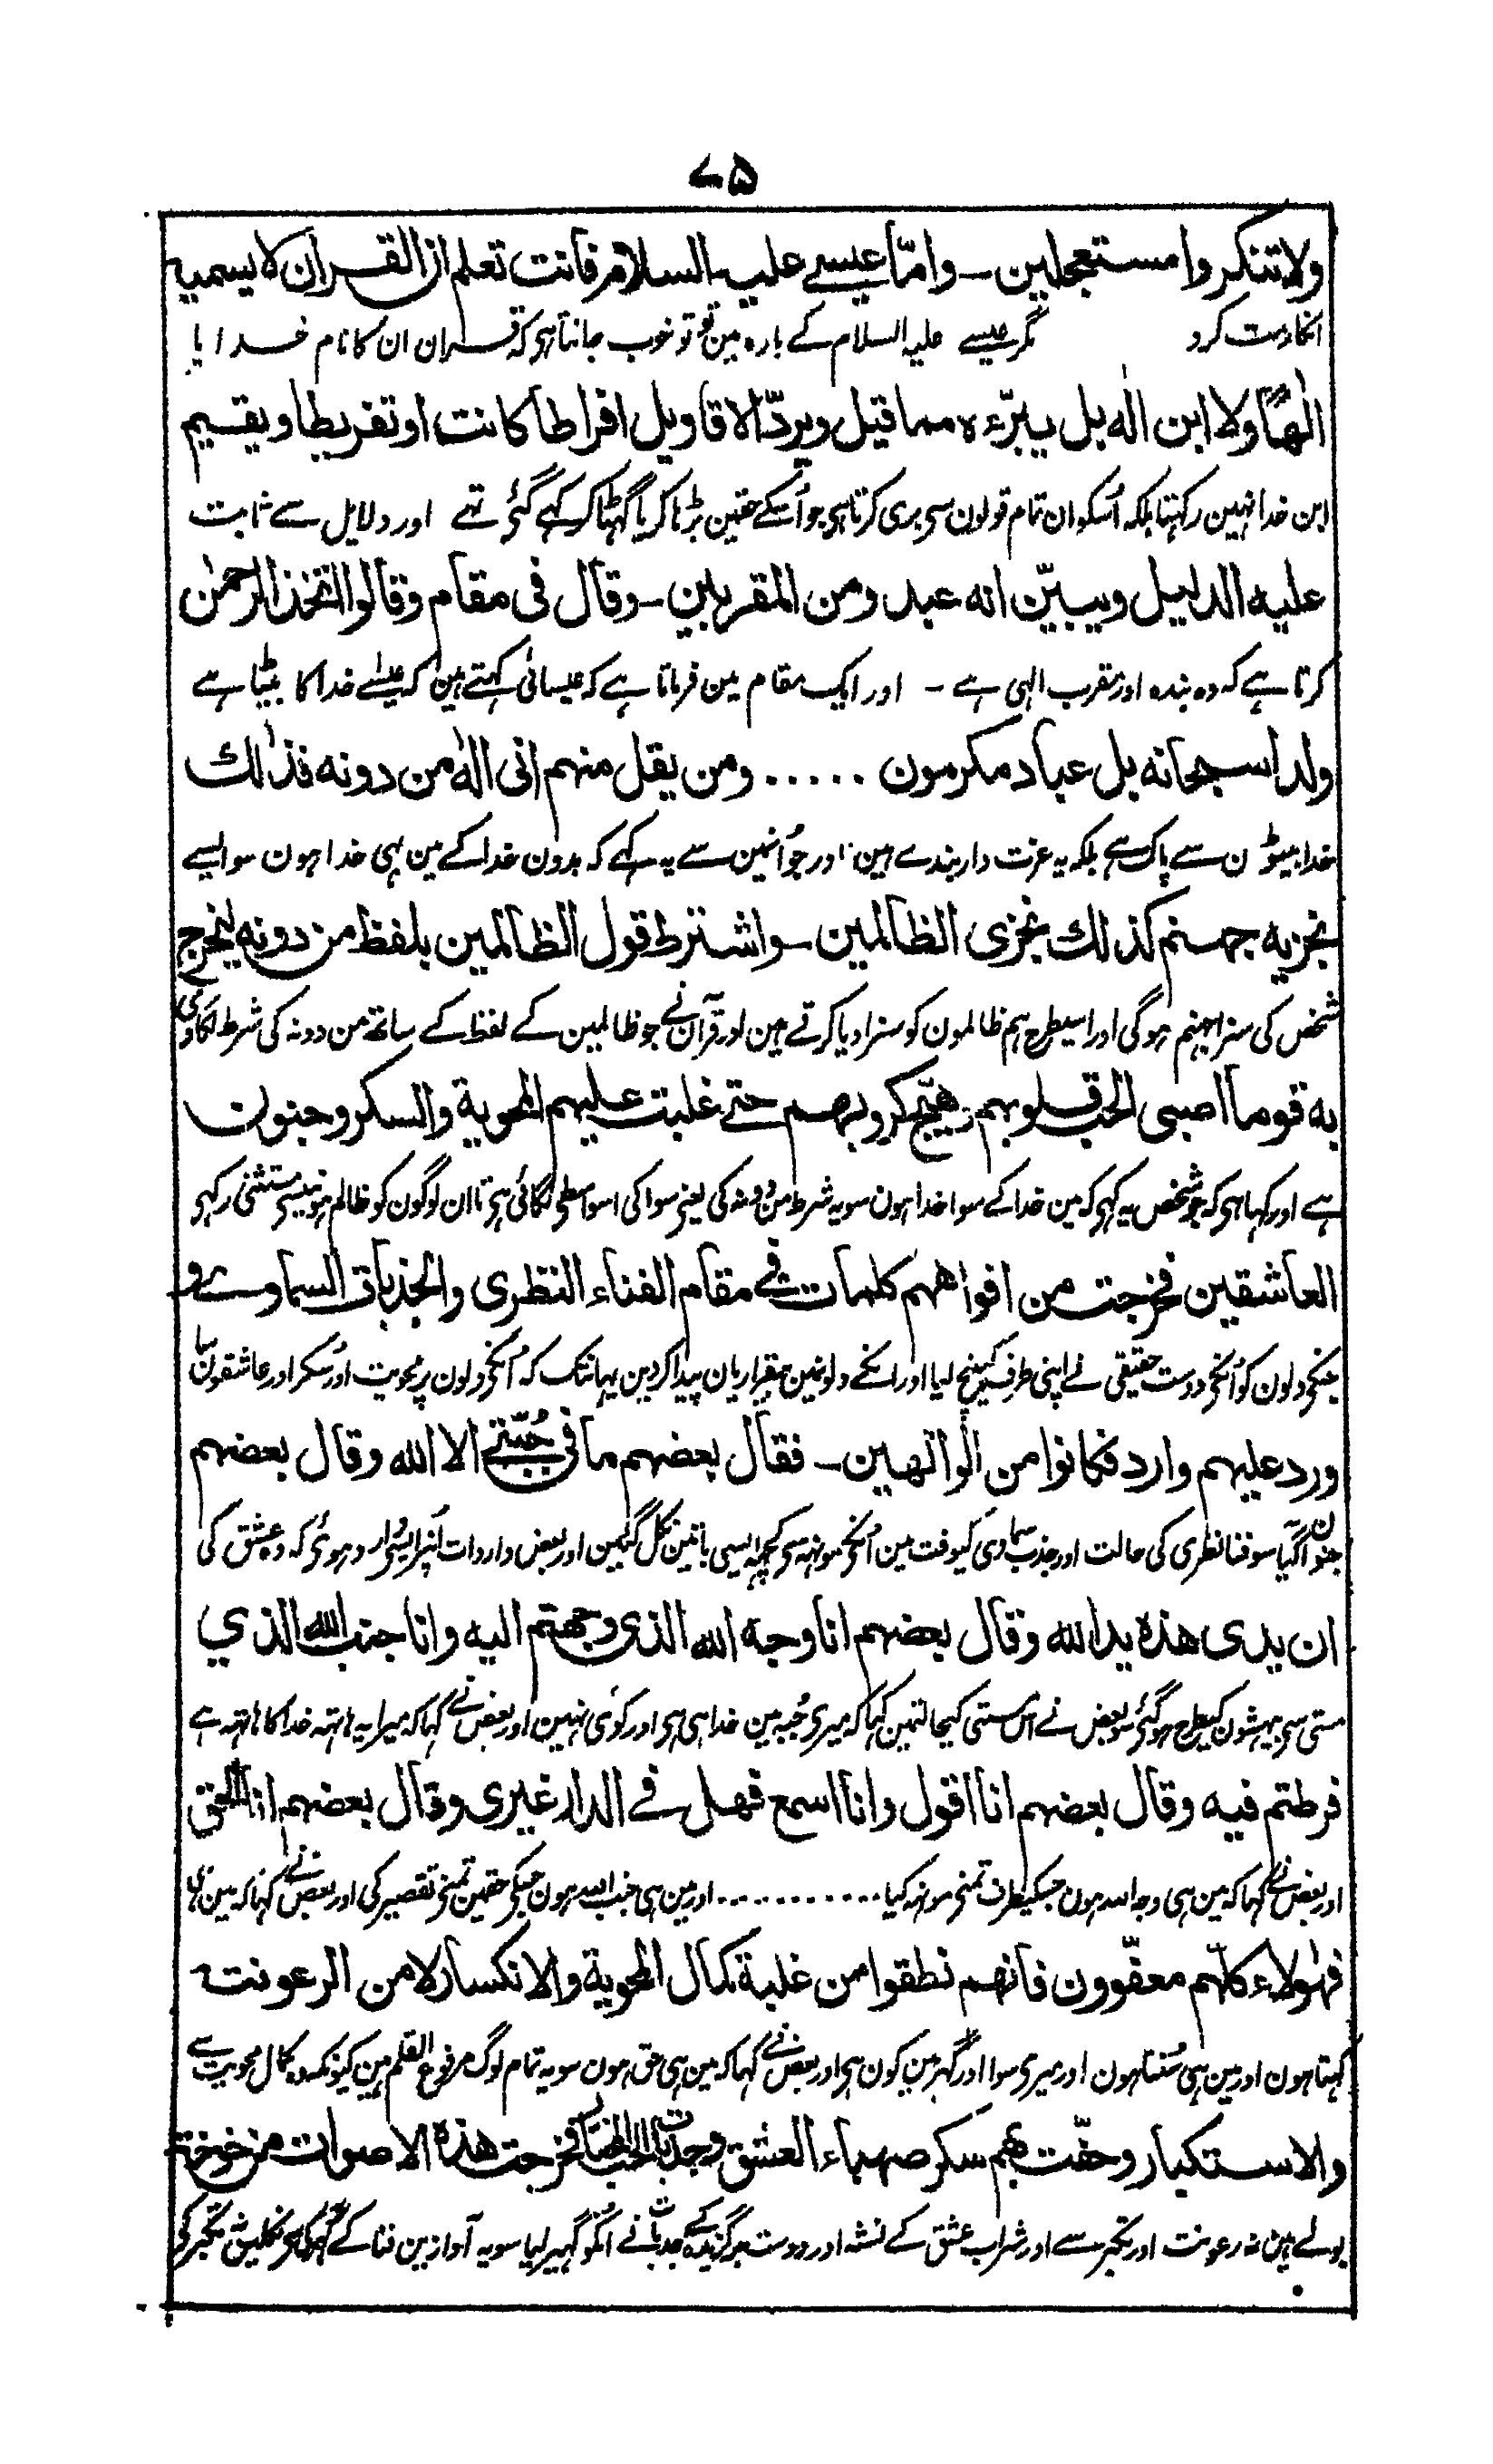 ۷۵
ولا تنكروا مستعجلين ـ وامّا عيسے عليه السلام فانت تعلم ان القران لا يسميه
انکار مت کرو مگر عیسے علیہ السلام کے بارہ مین تو تو خوب جانتا ہی کہ قران ان کا نام خدا یا
الٰهًا ولا ابن الٰه بل يبرّءه مما قيل ويردّ الاقاويل افراطا كانت او تفريطا ويقيم
ابن خدا نہین رکہتا بلکہ اُسکو ان تمام قولون سی بری کرتا ہی جو اُسکے حقمین بڑہا کر یا گہٹا کر کہے گئی تہے اور دلایل سے ثابت
عليه الدليل ويبيّن انه عبد ومن المقربين ـ وقال فى مقام وقالوا اتخذ الرحمٰن
کرتا ہے کہ وہ بندہ اور مقرب الہی ہے ـ اور ایک مقام مین فرماتا ہے کہ عیسائی کہتے ہین کہ عیسٰے خدا کا بیٹا ہے
ولدا سبحانه بل عباد مكرمون ..... ومن يقل منهم انى الٰه من دونه فذٰلك
خدا بیٹون سے پاک ہے بلکہ یہ عزت دار بندے ہین اور جو اُنمین سے یہ کہے کہ بدون خدا کے مین ہی خدا ہون سو ایسے
نجزيه جهنم كذلك نجزى الظالمين ـ واشترط قول الظالمين بلفظ من دونه ليخرج
شخص کی سزا جہنم ہوگی اور اسیطرح ہم ظالمون کو سزا دیا کرتے ہین اور قرآن نے جو ظالمین کے لفظ کے ساتھ من دونہ کی شرط لگا دی
به قوما اصبى الحب قلوبهم وهيّج كروبهم حتے غلبت عليهم المحوية والسكر وجنون
ہے اور کہا ہی کہ جو شخص یہ کہی کہ مین خدا کے سوا خدا ہون سو یہ شرط من دونہ کی یعنی سوا کی اسواسطی لگائی ہی تا ان لوگون کو ظالم ہونیسی مستثنیٰ رکہی
العاشقين فخرجت من افواههم كلمات فے مقام الفناء النظرى والجذبات السماوے و
جنکی دلون کو اُنکی دوست حقیقی نے اپنی طرف کہینچ لیا اور انکے دلونمین بیقراریان پیدا کردین یہانتک کہ اُنکی دلون پر محویت اور سکر اور عاشقون سا
ورد عليهم وارد فكانوا من الوالهين ـ فقال بعضهم ما فى جُبّتے الا الله وقال بعضهم
جنون آگیا سو فنا نظری کی حالت اور جذب سماوی کیوقت مین اُنکی مونہہ سی کچہہ ایسی باتین نکل گئین اور بعض واردات اُنپر ایسی وارد ہوئی کہ وہ عشق کی
ان يدى هذه يد الله وقال بعضهم انا وجه الله الذى وجهتم اليه وانا جنب الله الذي
مستی سی بیہشون کیطرح ہوگئی سو بعض نے اس مستی کیحالتمین کہا کہ میری جُبہ مین خدا ہی ہی اور کوئی نہین اور بعض نے کہا کہ میرا یہ ہاتہہ خدا کا ہاتہہ ہے
فرطتم فيه وقال بعضهم انا اقول وانا اسمع فهل فے الدار غيرى وقال بعضهم انا الحق
اور بعض نے کہا کہ مین ہی وجہ اللہ ہون جسکیطرف تمنی مونہہ کیا ........... اور مین ہی جنب اللہ ہون جسکی حقمین تمنی تقصیر کی اور بعض نے کہا کہ مین ہی
فهٰولاء كلّهم معفّوون فانهم نطقوا من غلبة كمال المحوية والانكسار لا من الرعونت
کہتا ہون اور مین ہی سُنتا ہون اور میری سوا اور گہر مین کون ہی اور بعض نے کہا کہ مین ہی حق ہون سو یہ تمام لوگ مرفوع القلم ہین کیونکہ وہ کمال محویت سے
والاستكبار وحفّت بهم سكر صهباء العشق وجذبات الحب المختار فخرجت هذه الاصوات من خوخة
بولے ہین نہ رعونت اور تکبّر سے اور شراب عشق کے نشہ اور دوست برگزیدہ کے جذبات نے انکو گہیر لیا سو یہ آوازین فنا کے کہڑکی سی نکلین نہ تکبّر کی